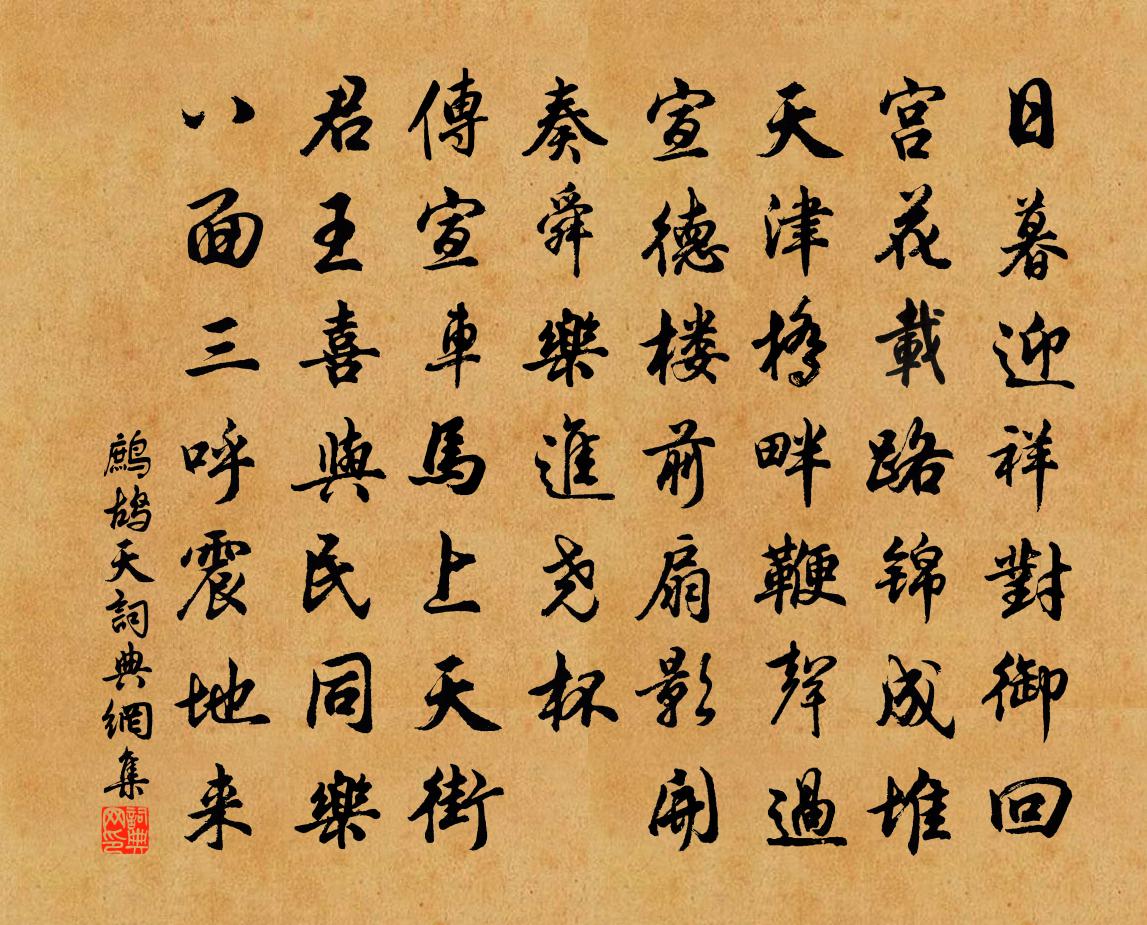 日暮迎祥對御回
宫花載路锦成堆
天津橋畔鞭聲過
宣德楼前扇影開
奏舜樂進尧杯
傳宣車馬上天街
君王喜與民同樂
八面三呼震地来
鷓鴣天詞典網集
詞典网印